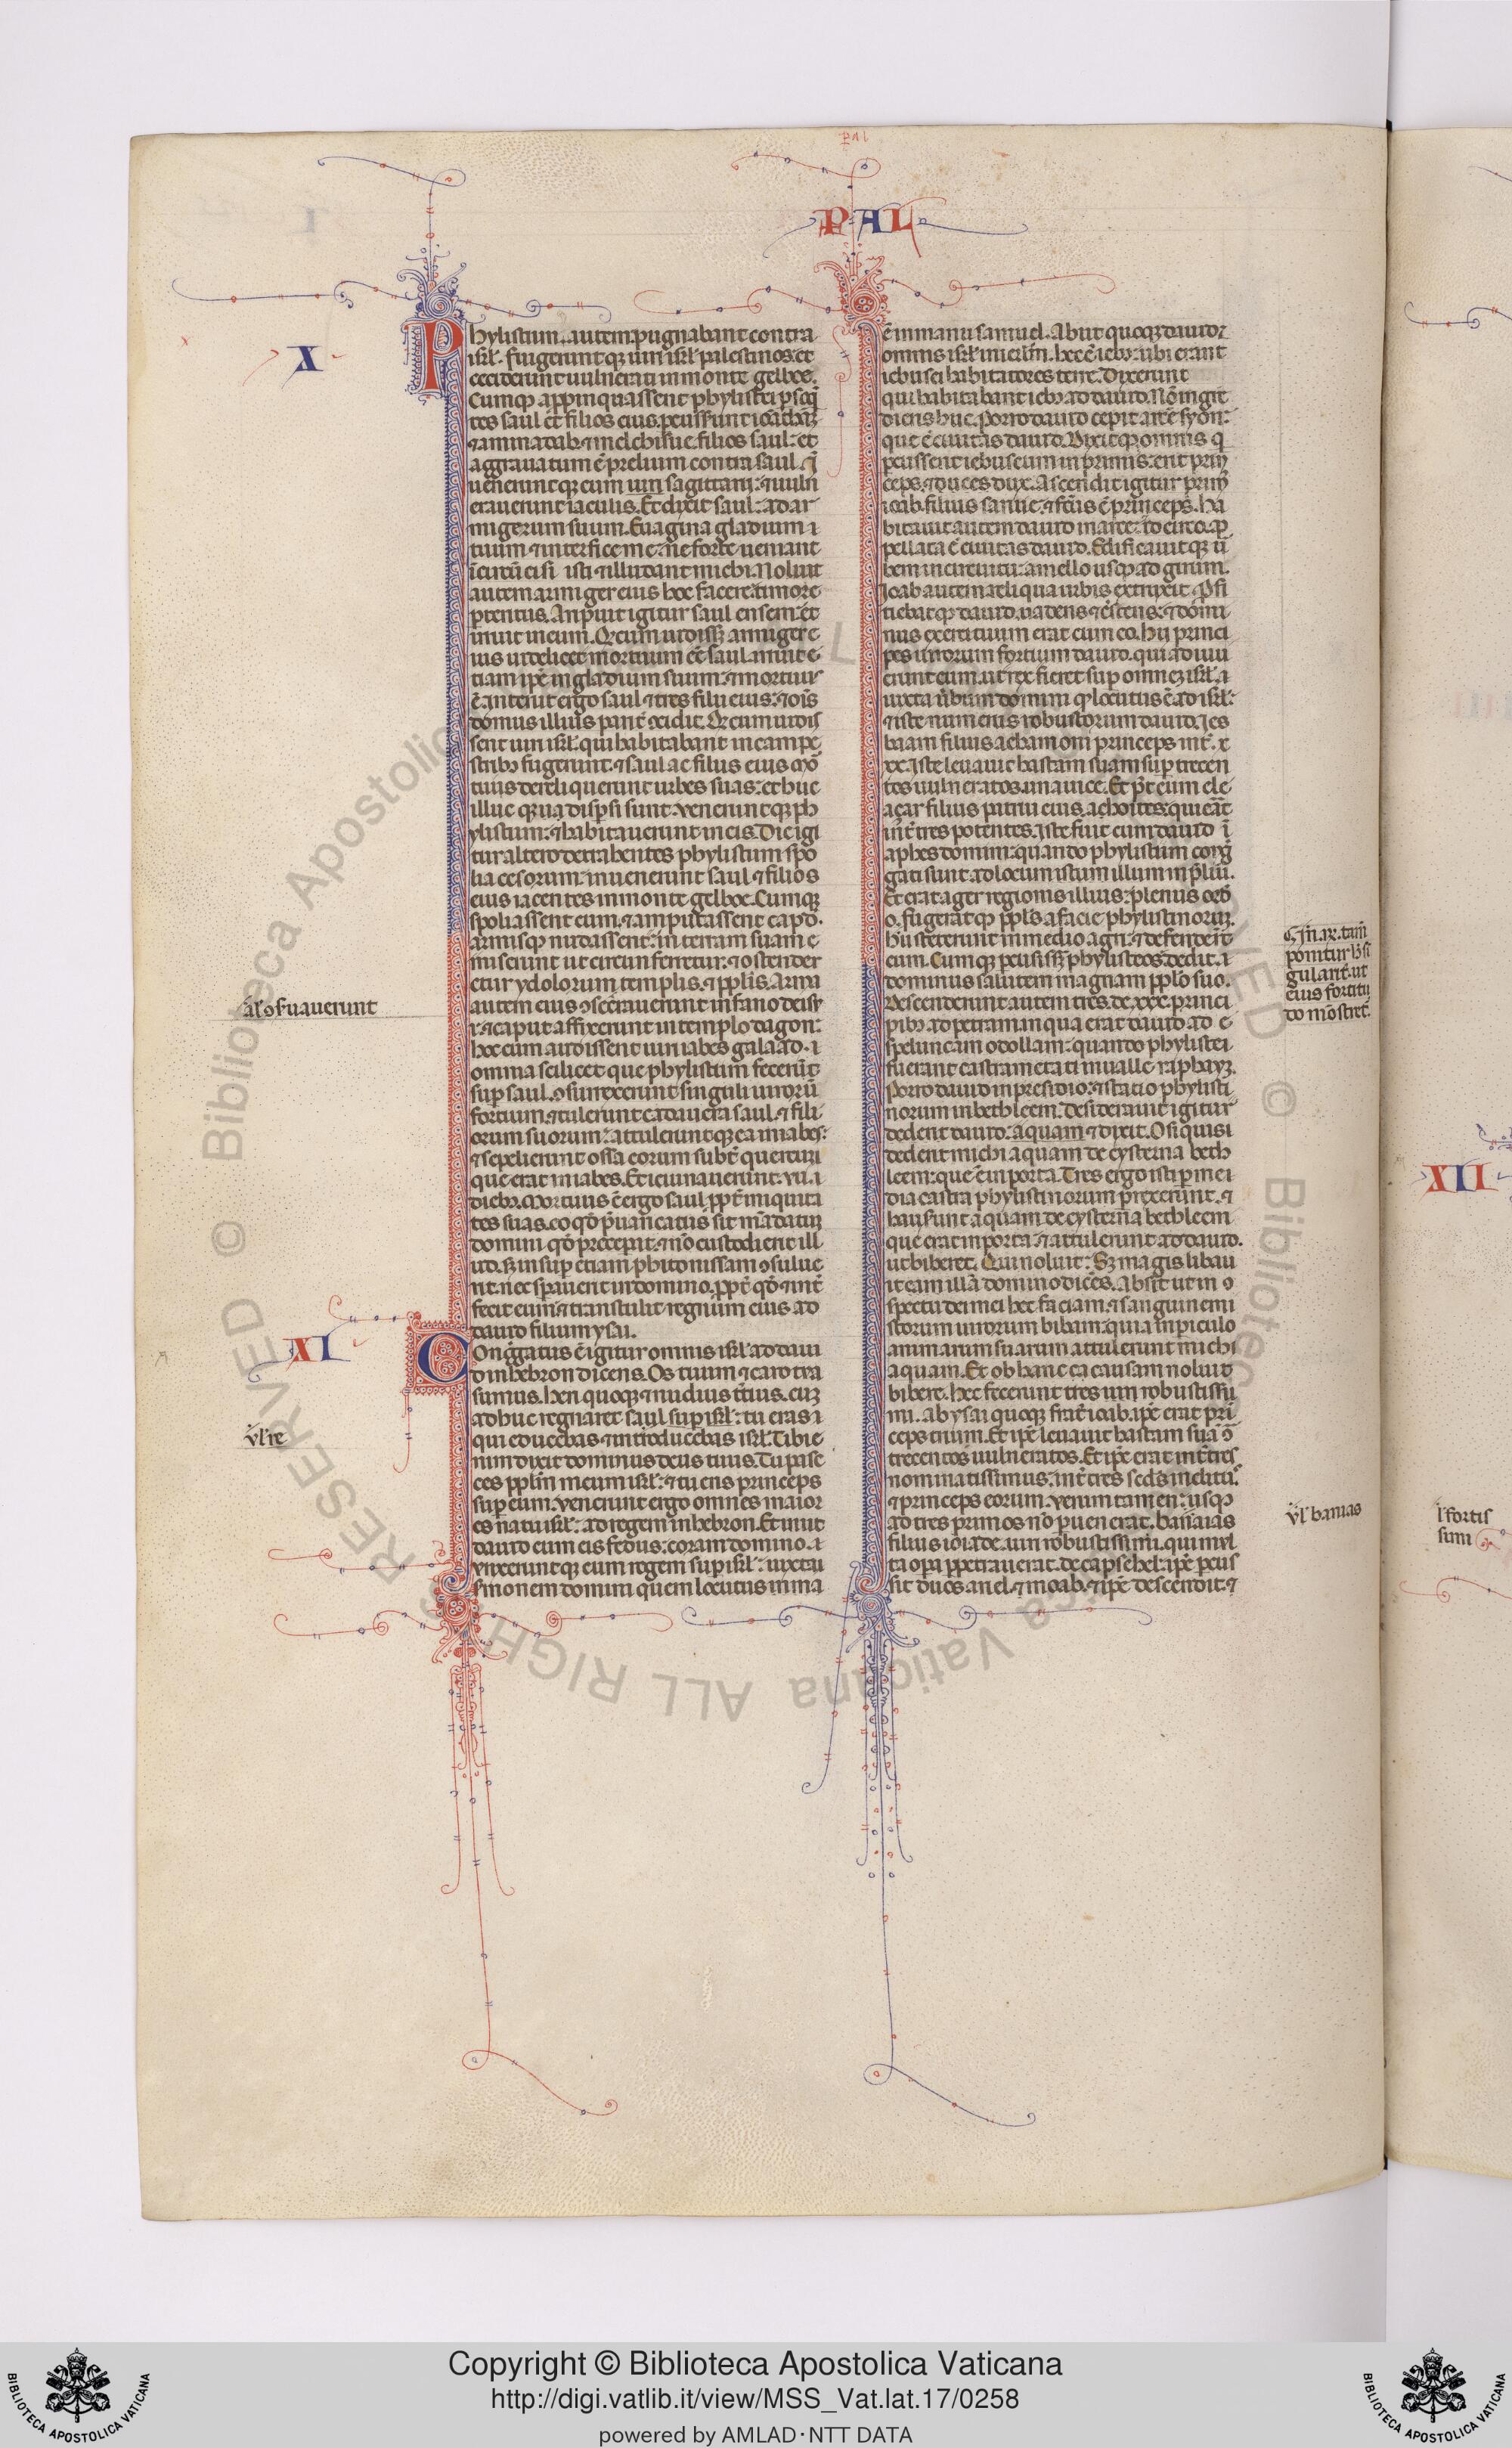 PAL
X
Phylistiim. autem pugnabant contra
isrł. fuigerunt qȝ uiri isrł palestinos: et
ceciderunt uulnerati in monte gelboe.
Cumqȝ appinquassent phylistei ꝑseqͥ
tes saul et filios eius. ꝑcusserunt ionathaȝ
⁊ aminadab. ⁊ melchisue. filios saul: et
aggrauatum ē prelium contra saul.
uenerunt qȝ eum uiri sagittarij: ⁊ uuln̄
erauerunt iaculis. Et dixit saul: ad ar
migerum suum. Euagina gladium
tuum ⁊ interfice me: ne forte ueniant
īcircūcisi isti ⁊ illudant michi. Noluit
autem armiger eius hoc facere: timore
ꝑterritus. Arripuit igitur saul ensem: et
irruit in eum. Qď cum uidissȝ armiger e
ius uidelicet mortuum eē saul. irruit e
tiam ipē in gladium suum: ⁊ mortuus
ē. interiit ergo saul ⁊ tres filii eius: ⁊ oīs
domus illius parit̄ cecidit. Qď cum uidis
sent uiri isrł. qui habitabant in campe
stribȝ fugerunt. ⁊ saul ac filiis eius mor
tuis dereliquerunt urbes suas: et huc
illuc qȝ uā disꝑsi sunt. Venerunt qȝ ph
ylistiim: ⁊ habitauerunt in eis. Die igi
tur altero detrahentes phylistiim spo
lia cesorum. inuenerunt saul ⁊ filios
eius iacentes in monte gelboe. Cumqȝ
spoliassent eum. ⁊ amputassent capđ.
armisqȝ nudassent: in terram suam e
miserunt ut circunferretur: ⁊ ostender
etur ydolorum templis. ⁊ ppłis. Arma
autem eius ɔsecrauerunt in fano dei sͥ
ı̄. ⁊ caput affixerunt in templo dagon:
hoc cum audissent uiri iabes galaad.
omnia scilicet que phylistiim fecerūt
suꝑ saul. ɔsurrexerunt singuli uirorū
fortium. ⁊ tulerunt cadauera saul. ⁊ fili
orum suorum: attulerunt qȝ ea in iabes:
⁊ sepelierunt ossa eorum subt̄ quercum
que erat in iabes. Et ieiunauerunt. vii.
diebȝ. Mortuus ē ergo saul. ꝓpt̄ iniquita
tes suas. eo qđ p̄uaricatus sit mādatum
domini qđ preceperit. ⁊ nō custodierit ill
ud. sȝ insuꝑ etiam phitonissam ɔsulue
rit. nec sꝑauerit in domino. ꝓpt̄ qđ ⁊ int̄
fecit eum. ⁊ transtulit regnum eius ad
dauid filium ysai.
āł ɔseruauerunt
XI
Congregatus ē igitur omnis isrł. ad daui
d in hebron dicens. Os tuum ⁊ caro tua
sumus. heri quoqȝ ⁊ nudius tertius. cuȝ
adhuc regnaret saul suꝑ isrł: tu eras
qui educebas ⁊ introducebas isrł. Tibi e
nim dixit dominus deus tuus. Tu pasc
es ppłm meum isrł: ⁊ tu eris princeps
suꝑ eum. Venerunt ergo omnes maior
es natu isrł. ad regem in hebron. Et iniit
dauid cum eis fedus: coram domino.
unxerunt qȝ eum regem suꝑ isrł: iuxta
ſmonem domini quem locutus in ma
v̄ł re
ē in manu samuel. Abiit quoqȝ dauid ⁊
omnis isrł in ierłm. hec ē iebȝ: ubi erant
iebusei habitatores terre. Dixerunt
qui habitabant iebȝ ad dauid. Nō ingre
dieris huc. Porro dauid cepit arcē syon:
que ē ciuitas dauid. Dixit qȝ omnis q
ꝑcusserit iebuseum in primis: erit prin
ceps. ⁊ duces dux. Ascendit igitur prim̄
ioab. filius saruie. ⁊ fcūs ē princeps. ha
bitauit autem dauid in arce: idcirco ap
pellata ē ciuitas dauid. Edificauit qȝ ur
bem in circuitu: a mello usqȝ ad girum.
Ioab autem reliqua urbis extruxit. Profi
ciebat qȝ dauid. uadens ⁊ crescens: ⁊ domi
nus exercituum erat cum eo. hii princi
pes uirorum fortium dauid. qui adiuu
erunt eum. ut rex fieret suꝑ omnez isrł.
iuxta uerbum domini qđ locutus ē ad isrł:
⁊ iste numerus robustorum dauid. Ies
baam filius achamoni princeps int̄. x
xx. iste leuauit hastam suam suꝑ trecen
tos uulneratos. una uice. Et p̄t eum ele
azar filius patrui eius. achoites: qui erāt
int̄ tres potentes. iste fuit cum dauid ī
aphes domim: quando phylistiim congre
gati sunt. ad locum istum illum in p̄liū.
Et erat ager regionis illius: plenus orde
o. fugerat qȝ ppłs a facie phylistinorum.
hii steterunt in medio agri: ⁊ defenderūt
eum. Cumqȝ ꝑcussissȝ phylisteos dedit.
dominus salutem magnam ppło suo.
Descenderunt autem tres. de xxx. princi
pibȝ ad petram. in qua erat dauid ad
speluncam odollam: quando phylistei
fuerant castrametati in ualle raphaym.
Porro dauid in presidio: ⁊ statio phylisti
norum in bethleem. Desiderauit igitur
dederit dauid: aquam ⁊ dixit. O si quis i
dederit michi aquam de cysterna beth
leem: que ē in porta. Tres ergo isti ꝑ me
dia castra phylistinorum ꝑrexerunt. ⁊
hauserunt aquam. de cysterna bethleem
que erat in porta: ⁊ attulerunt ad dauid.
ut biberet. Qui noluit: Sȝ magis libau
it eam illā domino dicēs. Absit ut in ɔ
spectu dei mei hec faciam. ⁊ sanguinem i
storum uirorum bibam: quia in ꝑiculo
animarum suarum attulerunt michi
aquam. Et ob hanc ca causam noluit
bibere. hec fecerunt tres uiri robustissi
mi. Abysai quoqȝ frat̄ ioab. ipē erat prī
ceps trium. Et ipē leuauit hastam suā ɔ̄
trecentos uulneratos. Et ipē erat int̄ tres
nominatissimus: int̄ tres scđs inclitꝰ.
⁊ princeps eorum. Verum tamen: usqȝ
ad tres primos nō ꝑuenerat. banaias
filius ioiade. uiri robustissimi. qui mul
ta oꝑa ꝑpetrauerat. de capsehel: ipē ꝑcus
sit duos ariel. ⁊ moab. ⁊ ipē descendit. ⁊
ponitur h̄ si
gularit̄. ut
eius fortitu
do mōstret̄.
v̄ł banias
XII
ł fortis
simi
Copyright © Biblioteca Apostolica Vaticana
http://digi.vatlib.it/view/MSS_Vat.lat.17/0258
powered by AMLAD · NTT DATA
BIBLIOTECA APOSTOLICA VATICANA
BIBLIOTECA APOSTOLICA VATICANA